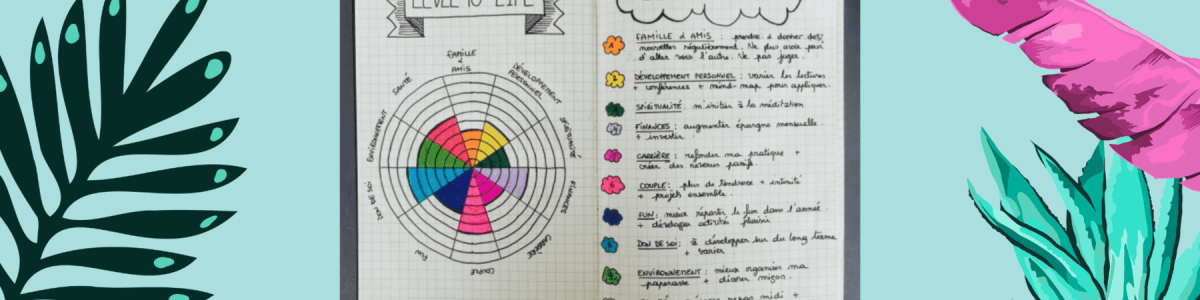 LEVEL 10 LIFE
FAMILLE
&
AMIS
DÉVELOPPEMENT
PERSONNEL
SPIRITUALITÉ
FINANCES
CARRIÈRE
COUPLE
FUN
DON DE SOI
ENVIRONNEMENT
SANTÉ
FAMILLE & AMIS : prendre & donner des
nouvelles régulièrement. Ne plus avoir peur
d'aller vers l'autre. Ne pas juger.
DÉVELOPPEMENT PERSONNEL : varier les lectures
+ conférences + mind-map pour appliquer.
SPIRITUALITÉ : m'initier à la méditation
FINANCES : augmenter épargne mensuelle
+ investir.
CARRIÈRE : refonder ma pratique +
créer des revenus passifs.
COUPLE : plus de tendresse + intimité
+ projets ensemble.
FUN : mieux répartir le fun dans l'année
+ développer activités plaisir
DON DE SOI : à développer sur du long terme
+ varier
ENVIRONNEMENT : mieux organiser ma
paperasse + décorer maison.
repas midi +